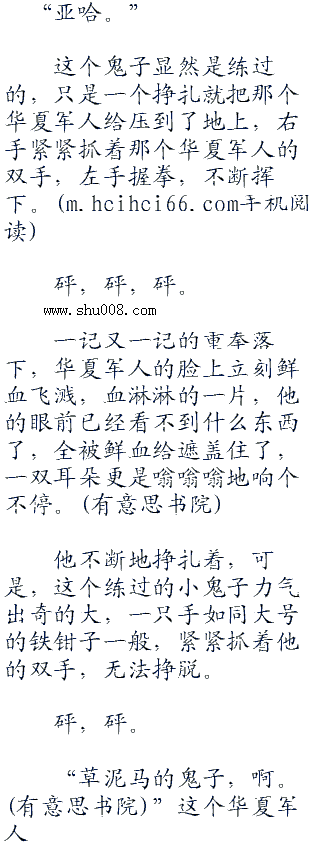 “亚哈。”
这个鬼子显然是练过
的，只是一个挣扎就把那个
华夏军人给压到了地上，右
手紧紧抓着那个华夏军人的
双手，左手握拳，不断挥
下。(m.hcihci66.com手机阅
读)
砰，砰，砰。
www.shu008.com
一记又一记的重拳落
下，华夏军人的脸上立刻鲜
血飞溅，血淋淋的一片，他
的眼前已经看不到什么东西
了，全被鲜血给遮盖住了，
一双耳朵更是嗡嗡嗡地响个
不停。(有意思书院)
他不断地挣扎着，可
是，这个练过的小鬼子力气
出奇的大，一只手如同大号
的铁钳子一般，紧紧抓着他
的双手，无法挣脱。
砰，砰。
“草泥马的鬼子，啊。
(有意思书院)”这个华夏军
人